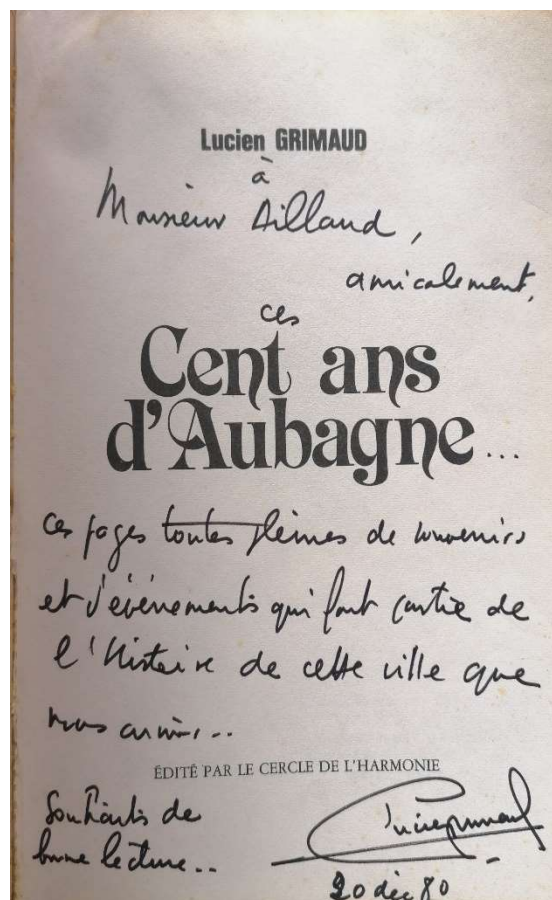 Lucien GRIMAUD
à
Monsieur Aillaud,
amicalement,
ces
Cent ans
d'Aubagne...
ces pages toutes pleines de souvenirs
et d'événements qui font partie de
l'Histoire de cette ville que
nous aimons..
ÉDITÉ PAR LE CERCLE DE L'HARMONIE
Souhaits de
bonne lecture..
20 déc 80